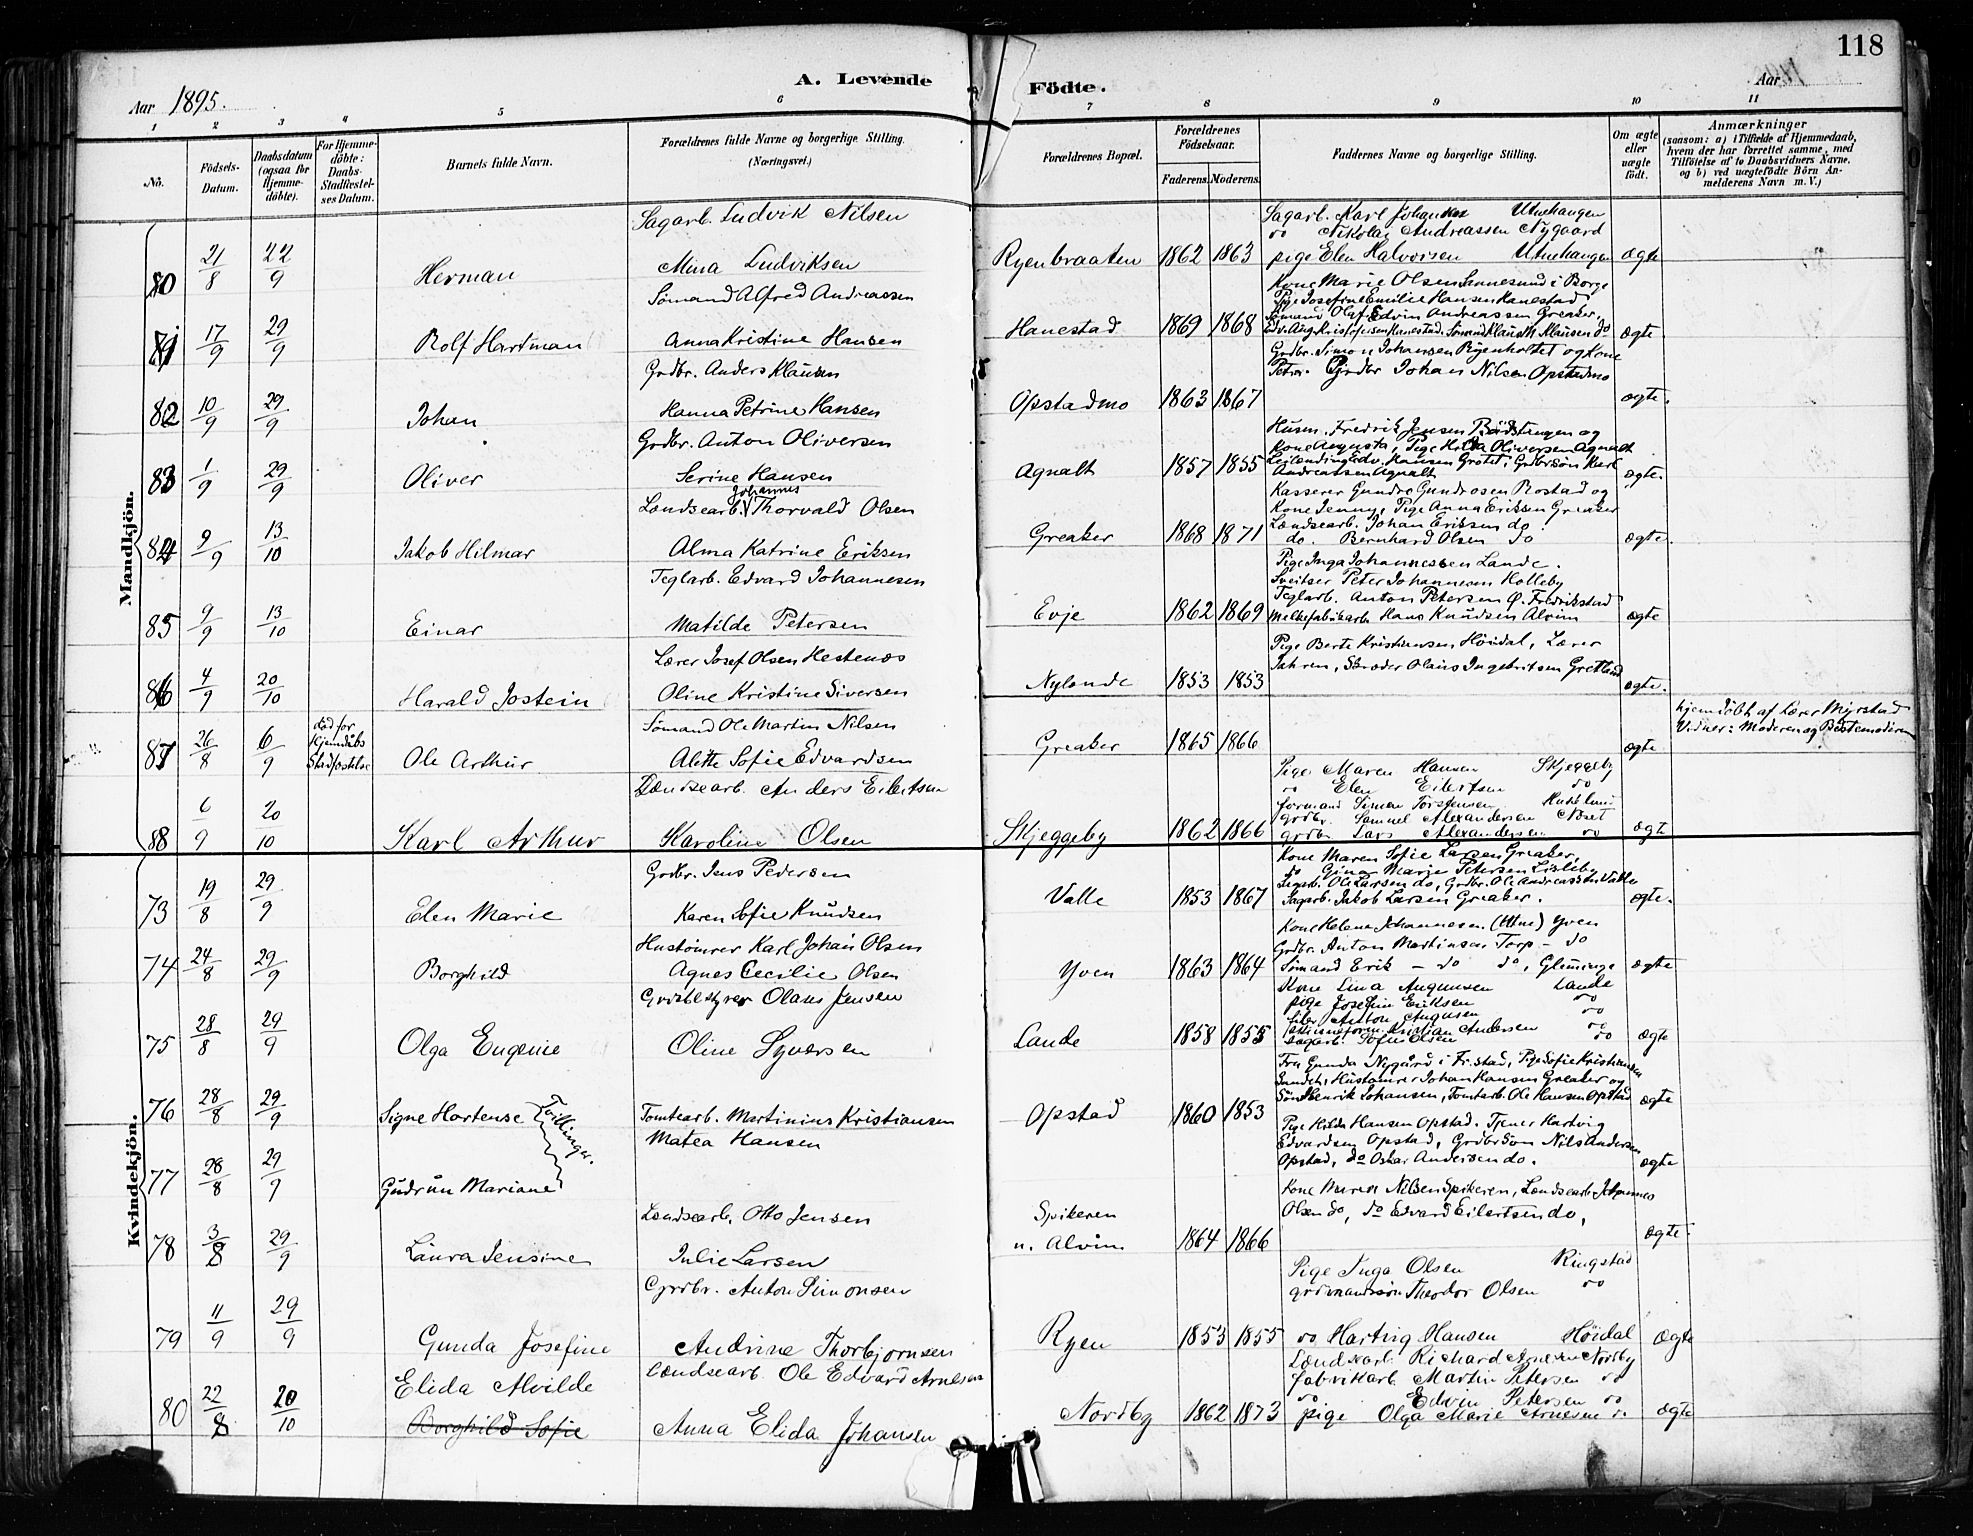 118
A. Levende Födte.
Aar 1895.
Aar
1 2 3 4 5 6 7 8 9 10 11
No.
Födsels-
Datum.
Daabsdatum
(ogsaa for
Hjemme-
döbte).
For Hjemme-
döbte:
Daabs-
Stadfæstel-
ses Datum.
Barnets fulde Navn.
Forældrenes fulde Navne og borgerlige Stilling.
(Næringsvei.)
Forældrenes Bopæl.
Forældrenes
Födselsaar.
Faderens. Moderens.
Faddernes Navne og borgerlige Stilling.
Om ægte
eller
uægte
födt.
Anmærkninger
(saasom: a) i Tilfælde af Hjemmedaab,
hvem der har forrettet samme, med
Tilföielse af to Daabsvidners Navne,
og b) ved uægtefödte Börn An-
melderens Navn m. V.)
Mandkjön.
Sagarb. Ludvik Nilsen
Sagarb. Karl Johansen Utnehaugen
do Nikolai Andreassen Nygaard
80 21/8 22/9 Herman Mina Ludviksen Ryenbraaten 1862 1863 pige Elen Halvorsen Utnehaugen ægte
Sømand Alfred Andreassen
Kone Marie Olsen Sannesund i Borge
Pige Josefine Emilie Hansen Hanestad
Sømand Olaf Edvin Andreassen Greaker,
81 17/9 29/9 Rolf Hartman Anna Kristine Hansen Hanestad 1869 1868 Edv. Aug. Kristofersen Hanestad, Sømand Klaus M. Klausen do ægte
Grdbr. Anders Klausen
Grdbr. Simon Johansen Ryenholtet og Kone
Petra. Grdbr Johan Nilsen Opstadmo
82 10/9 29/9 Johan Hanna Petrine Hansen Opstadmo 1863 1867 ægte.
Grdbr. Anton Oliversen
Husm. Fredrik Jensen Rødstangen og
Kone Augusta, Pige Hulda Oliversen Agnalt
83 1/9 29/9 Oliver Serine Hansen Agnalt 1857 1855 Edv. Hansen Grotet, Grdbrsøn Karl
Andreassen Agnalt ægte.
Johannes
Landsearb. Thorvald Olsen
Kasserer Gundro Gundrosen Rostad og
Kone Jenny, Pige Anna Eriksen Greaker
Lændsearb. Johan Eriksen do
84 9/9 13/10 Jakob Hilmar Alma Katrine Eriksen Greaker 1868 1871 do. Bernhard Olsen do ægte.
Teglarb. Edvard Johannesen
Pige Inga Johannessen Lande.
Sveitser Peter Johannesen Holleby
Teglarb. Anton Petersen Ø. Fredrikstad
85 9/9 13/10 Einar Matilde Petersen Evje 1862 1869 Melkefabrikarb. Hans Knudsen Alvim ægte
Lærer Josef Olsen Hestenæs
Pige Berte Kristiansen Høidal, Lærer
Jahren, Skræder Olaus Ingebritsen Gretland
86 4/9 20/10 Harald Jostein Oline Kristine Siversen Nylende 1853 1853 ægte.
Sømand Ole Martin Nilsen
Død før
Hjemdåbs
Stadfæstelse
87 26/8 6/9 Ole Arthur Alette Sofie Edvardsen Greaker 1865 1866 ægte
hjemdöbt af Lærer Myrstad
Vidner: Moderen og Bestemoderen
Lændsearb. Anders Eilertsen
Pige Maren Hansen Skjeggeby
do Elen Eilertsen do
formand Simen Torstensen
grdbr. Samuel Alexandersen Næset
88 6/9 20/10 Karl Arthur Karoline Olsen Skjeggeby 1862 1866 grdbr. Lars Alexandersen do ægt
Kvindekjön.
Grdbr. Jens Pedersen
Kone Maren Sofie Larsen Greaker,
do Gina Marie Petersen Lisleby
Sagarb. Ole Larsen do, Grdbr. Ole Andreassen Valle
73 19/8 29/9 Elen Marie Karen Sofie Knudsen Valle 1853 1867 Sagarb. Jakob Larsen Greaker. ægte.
Hustømrer Karl Johan Olsen
Kone Helene Johannesen (Utne) Yven
Grdbr. Anton Martinsen Torp - do
74 24/8 29/9 Borghild Agnes Cecilie Olsen Yven 1863 1864 Sømand Erik - do do, Glemminge ægte
Godsbestyrer Olaus Jensen
Kone Lina Augunsen Lande
pige Josefin Eriksen do
Anton Augunsen
Kristian Andersen do
75 28/8 29/9 Olga Eugenie Oline Syversen Lande 1858 1855 Sagarb. Tofin Olsen do ægte
Fru Gunda Nygård i Fr.stad, Pige Sofie Kristiansen
Sundet, Hustømrer Johan Hansen Greaker og
76 28/8 29/9 Signe Hortense Tomtearb. Martinius Kristiansen Opstad 1860 1853 Søn Henrik Johansen, Tomtarb. Ole Hansen Opstad ægte
Tvillinger.
Matea Hansen
Pige Hilda Hansen Opstad. Tjener Hartvig
Edvardsen Opstad, Grdbr Søn Nils Andersen
77 28/8 29/9 Gudrun Mariane Opstad, do Oskar Andersen do. ægte
Lændsearb. Otto Jensen
Kone Maren Nilsen Spikeren, Lændsearb. Johannes
Olsen do, do Edvard Eilertsen do,
78 3/8 29/9 Laura Jensine Julie Larsen Spikeren
u. Alvim 1864 1866 ægte.
Grdbr. Anton Simonsen
Pige Inga Olsen Ringstad
grdmandssøn Theodor Olsen do
79 11/9 29/9 Gunda Josefine Andrine Thorbjørnsen Ryen 1853 1855 do Hartvig Hansen Høidal ægte
Elida Alvilde
Lændsearb. Ole Edvard Arnesen
Lændsearb. Richard Arnesen Nordby
fabrikarb. Martin Petersen do
do Edvin Petersen do
80 22/8 20/10 Borghild Sofie Anna Elida Johansen Nordby 1862 1873 pige Olga Marie Arnesen do ægte